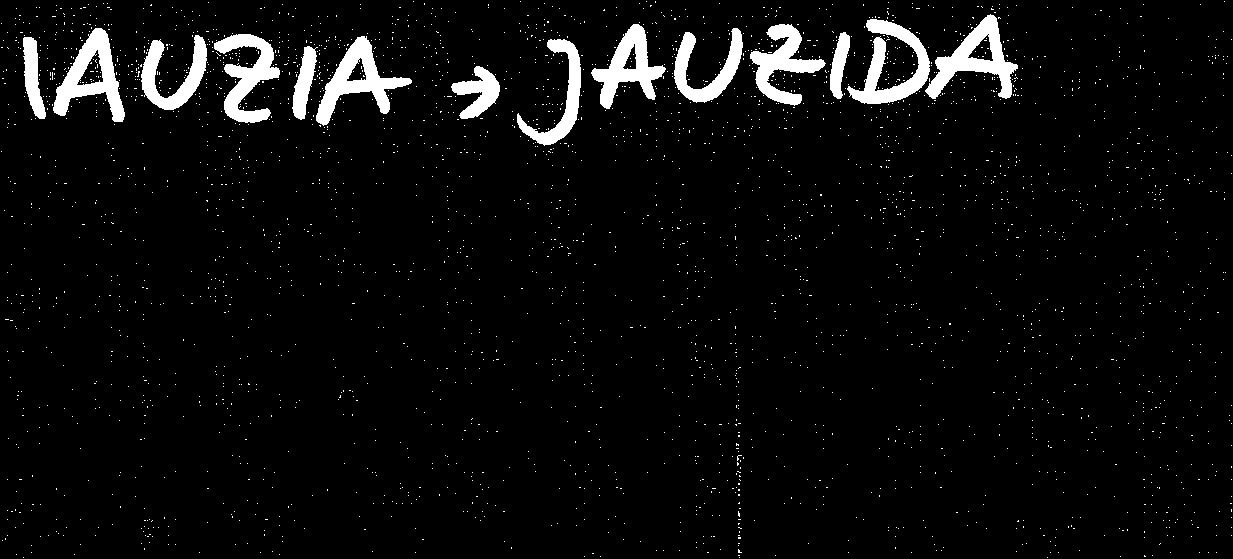 IAUZIA → JAUZIDA